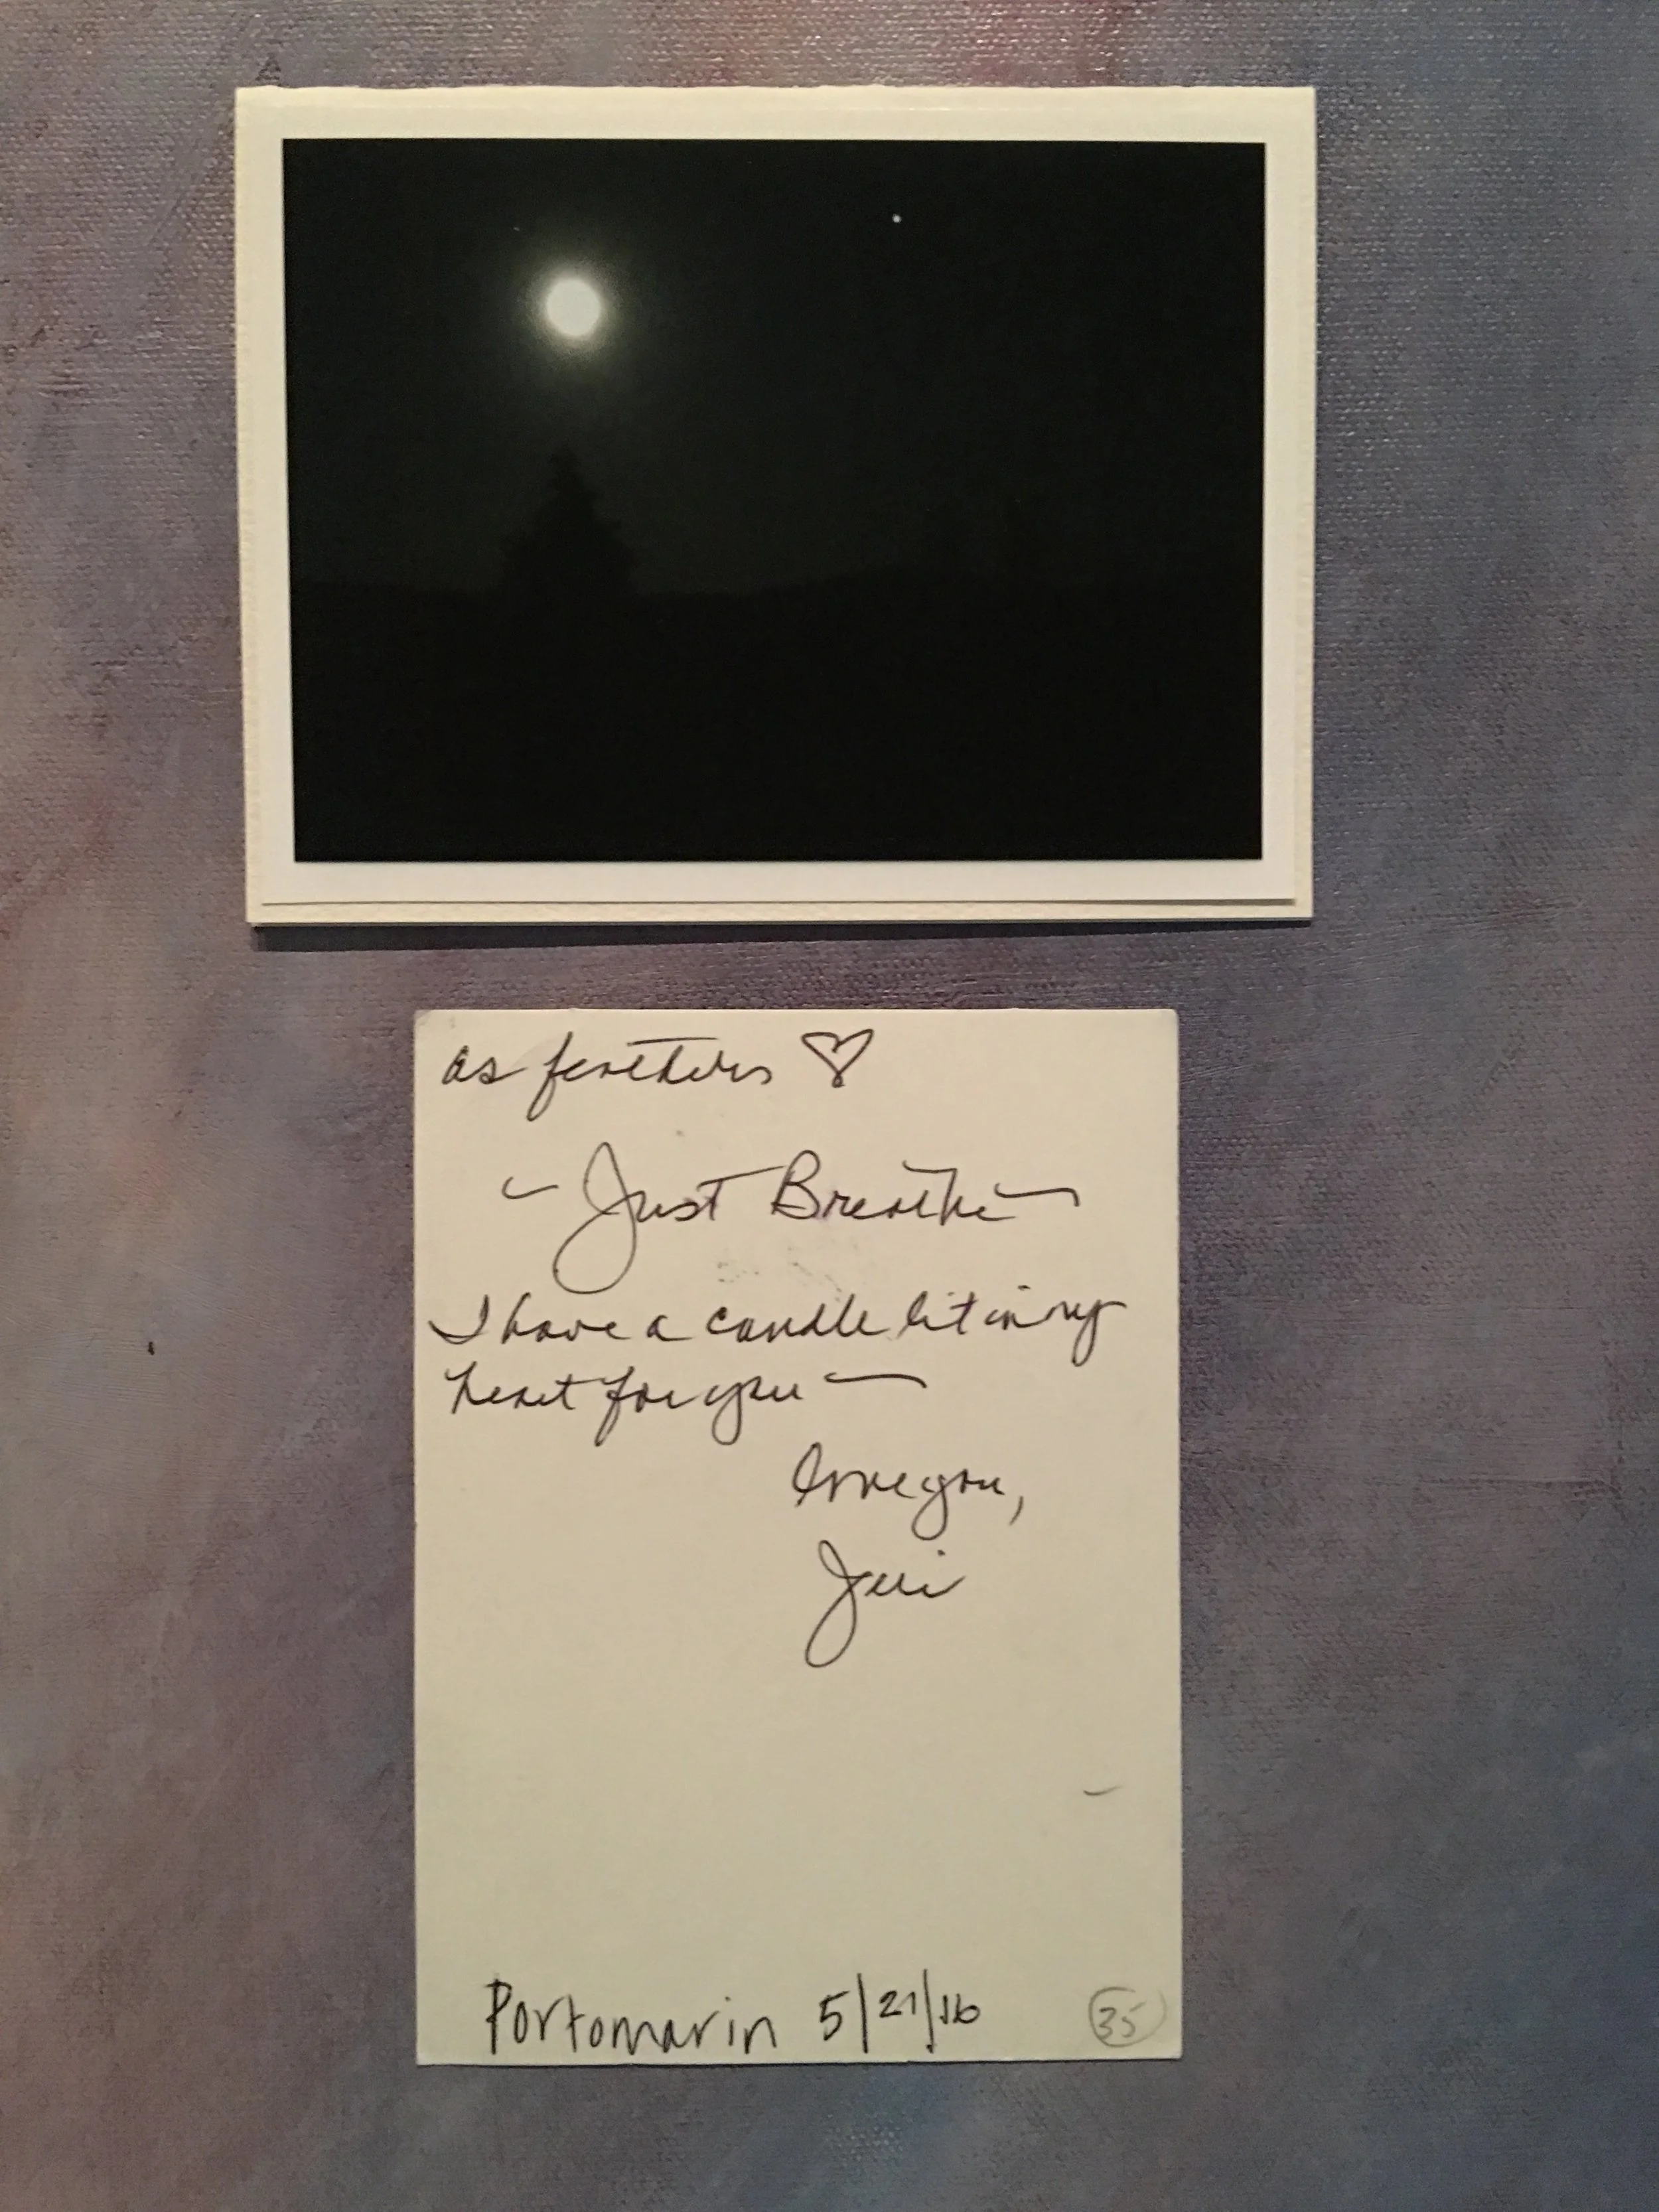 as feathers ♡
~ Just Breathe ~
I have a candle lit in my
heart for you —
love you,
Jeri
Portomarin 5/21/16
35